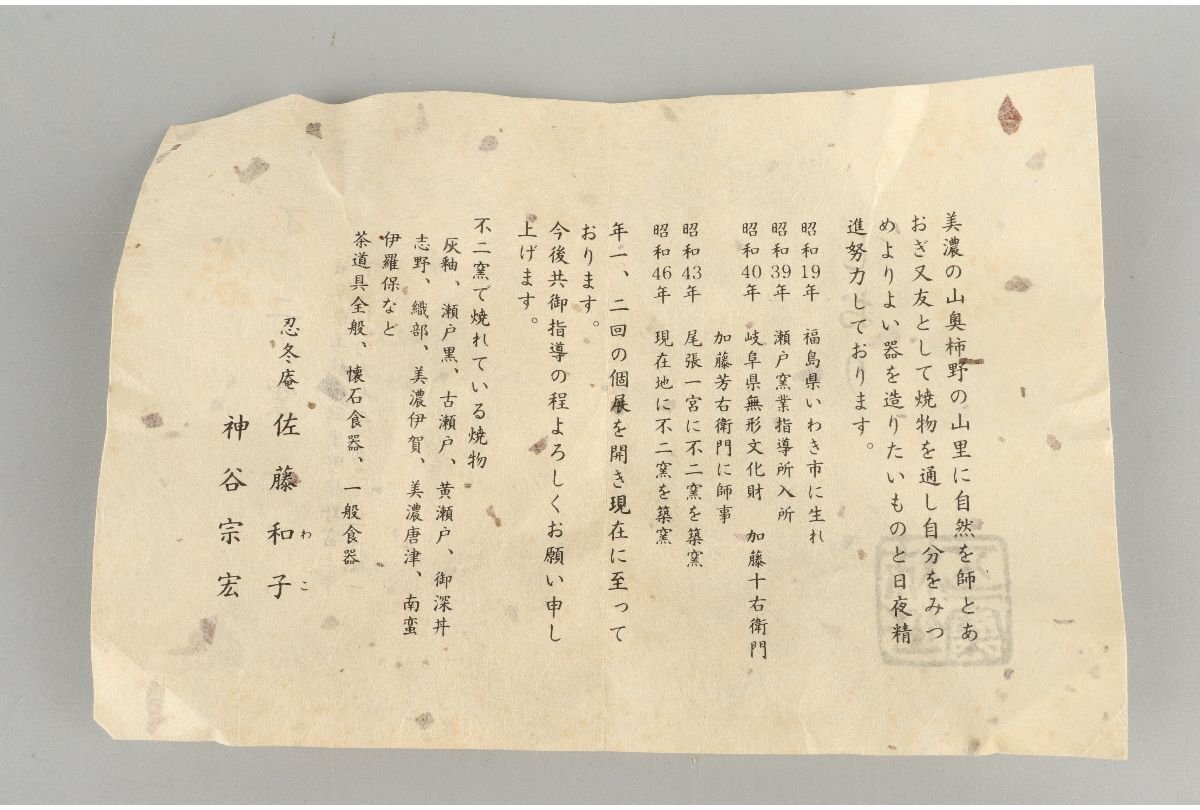 美濃の山奥柿野の山里に自然を師とあ
おぎ又友として焼物を通し自分をみつ
めよりよい器を造りたいものと日夜精
進努力しております。
昭和19年 福島県いわき市に生れ
昭和39年 瀬戸窯業指導所入所
昭和40年 岐阜県無形文化財 加藤十右衛門
加藤芳右衛門に師事
昭和43年 尾張一宮に不二窯を築窯
昭和46年 現在地に不二窯を築窯
年一、二回の個展を開き現在に至って
おります。
今後共御指導の程よろしくお願い申し
上げます。
不二窯で焼れている焼物
灰釉、瀬戸黒、古瀬戸、黄瀬戸、御深丼
志野、織部、美濃伊賀、美濃唐津、南蛮
伊羅保など
茶道具全般、懐石食器、一般食器
忍冬庵 佐藤和子
わこ
神谷宗宏